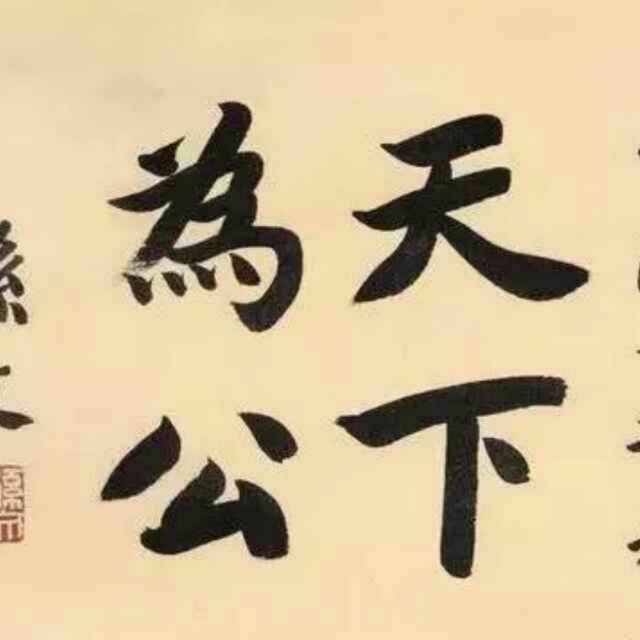 天下
為公
孫文